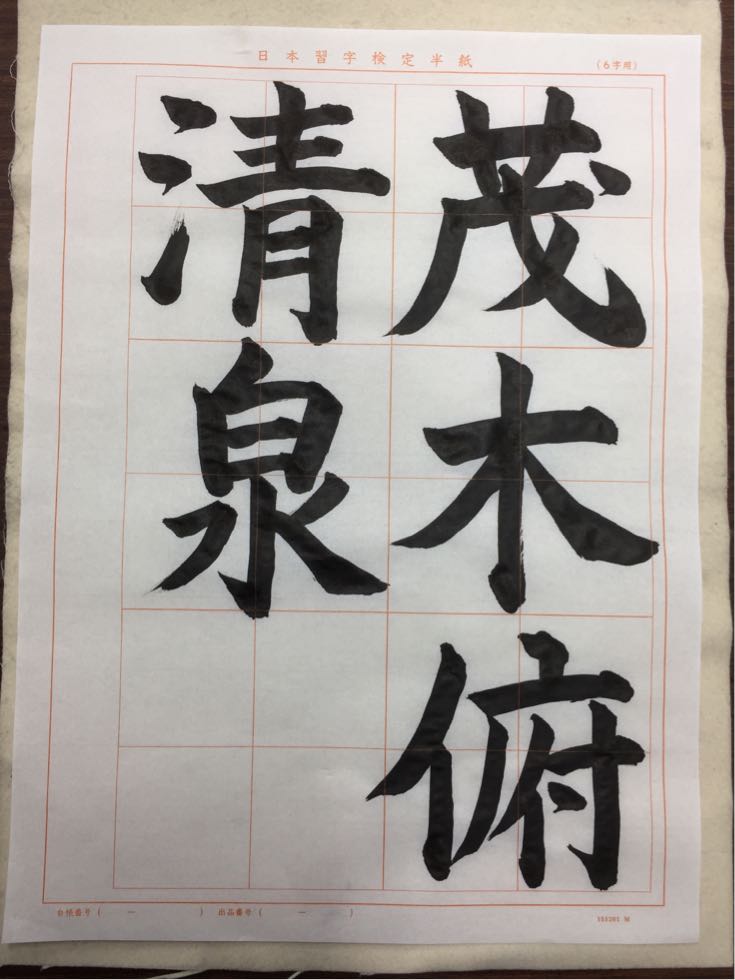 日本習字検定半紙
(6字用)
茂木俯
清泉
台帳番号 ( — )
出品番号 ( — )